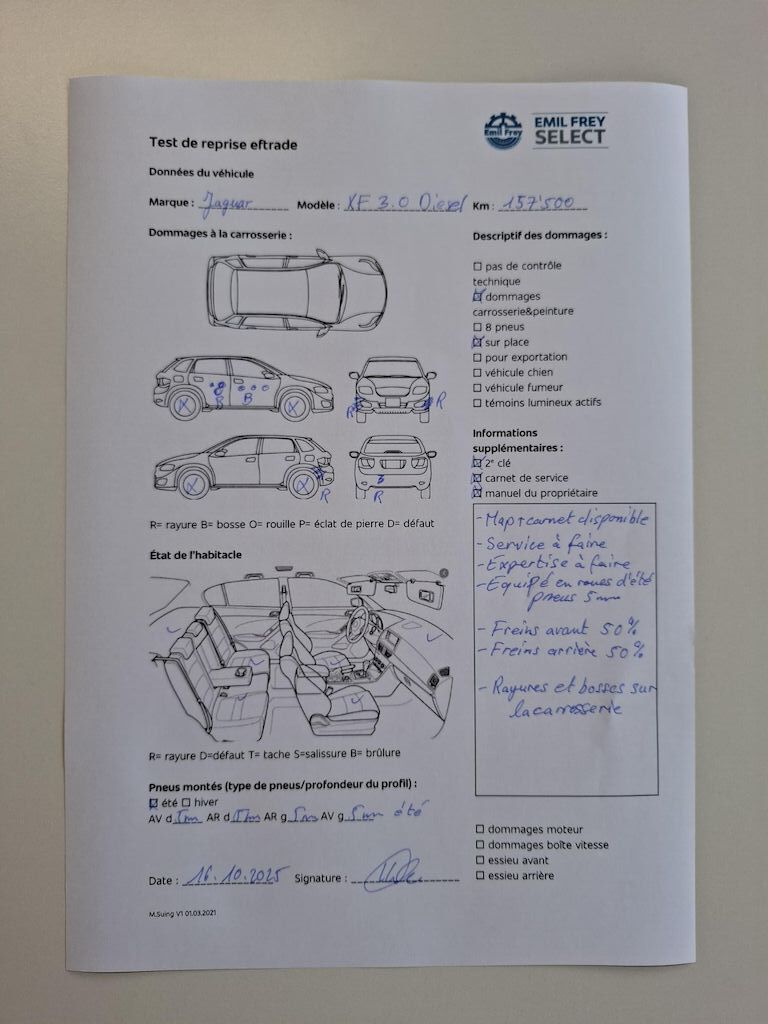 Emil Frey
EMIL FREY
SELECT
Test de reprise eftrade
Données du véhicule
Marque : Jaguar Modèle : XF 3.0 Diesel Km : 157'500
Dommages à la carrosserie :
B B
R R
R
B
R
R= rayure B= bosse O= rouille P= éclat de pierre D= défaut
État de l'habitacle
R= rayure D=défaut T= tache S=salissure B= brûlure
Pneus montés (type de pneus/profondeur du profil) :
été hiver
AV d 5mm AR d 5mm AR g 5mm AV g 5mm été
Date : 16.10.2025 Signature :
M.Suing V1 01.03.2021
Descriptif des dommages :
pas de contrôle
technique
dommages
carrosserie&peinture
8 pneus
sur place
pour exportation
véhicule chien
véhicule fumeur
témoins lumineux actifs
Informations
supplémentaires :
2e clé
carnet de service
manuel du propriétaire
- Map + carnet disponible
- Service à faire
- Expertise à faire
- Equipé en roues d'été
pneus 5mm
- Freins avant 50%
- Freins arrière 50%
- Rayures et bosses sur
la carrosserie
dommages moteur
dommages boîte vitesse
essieu avant
essieu arrière